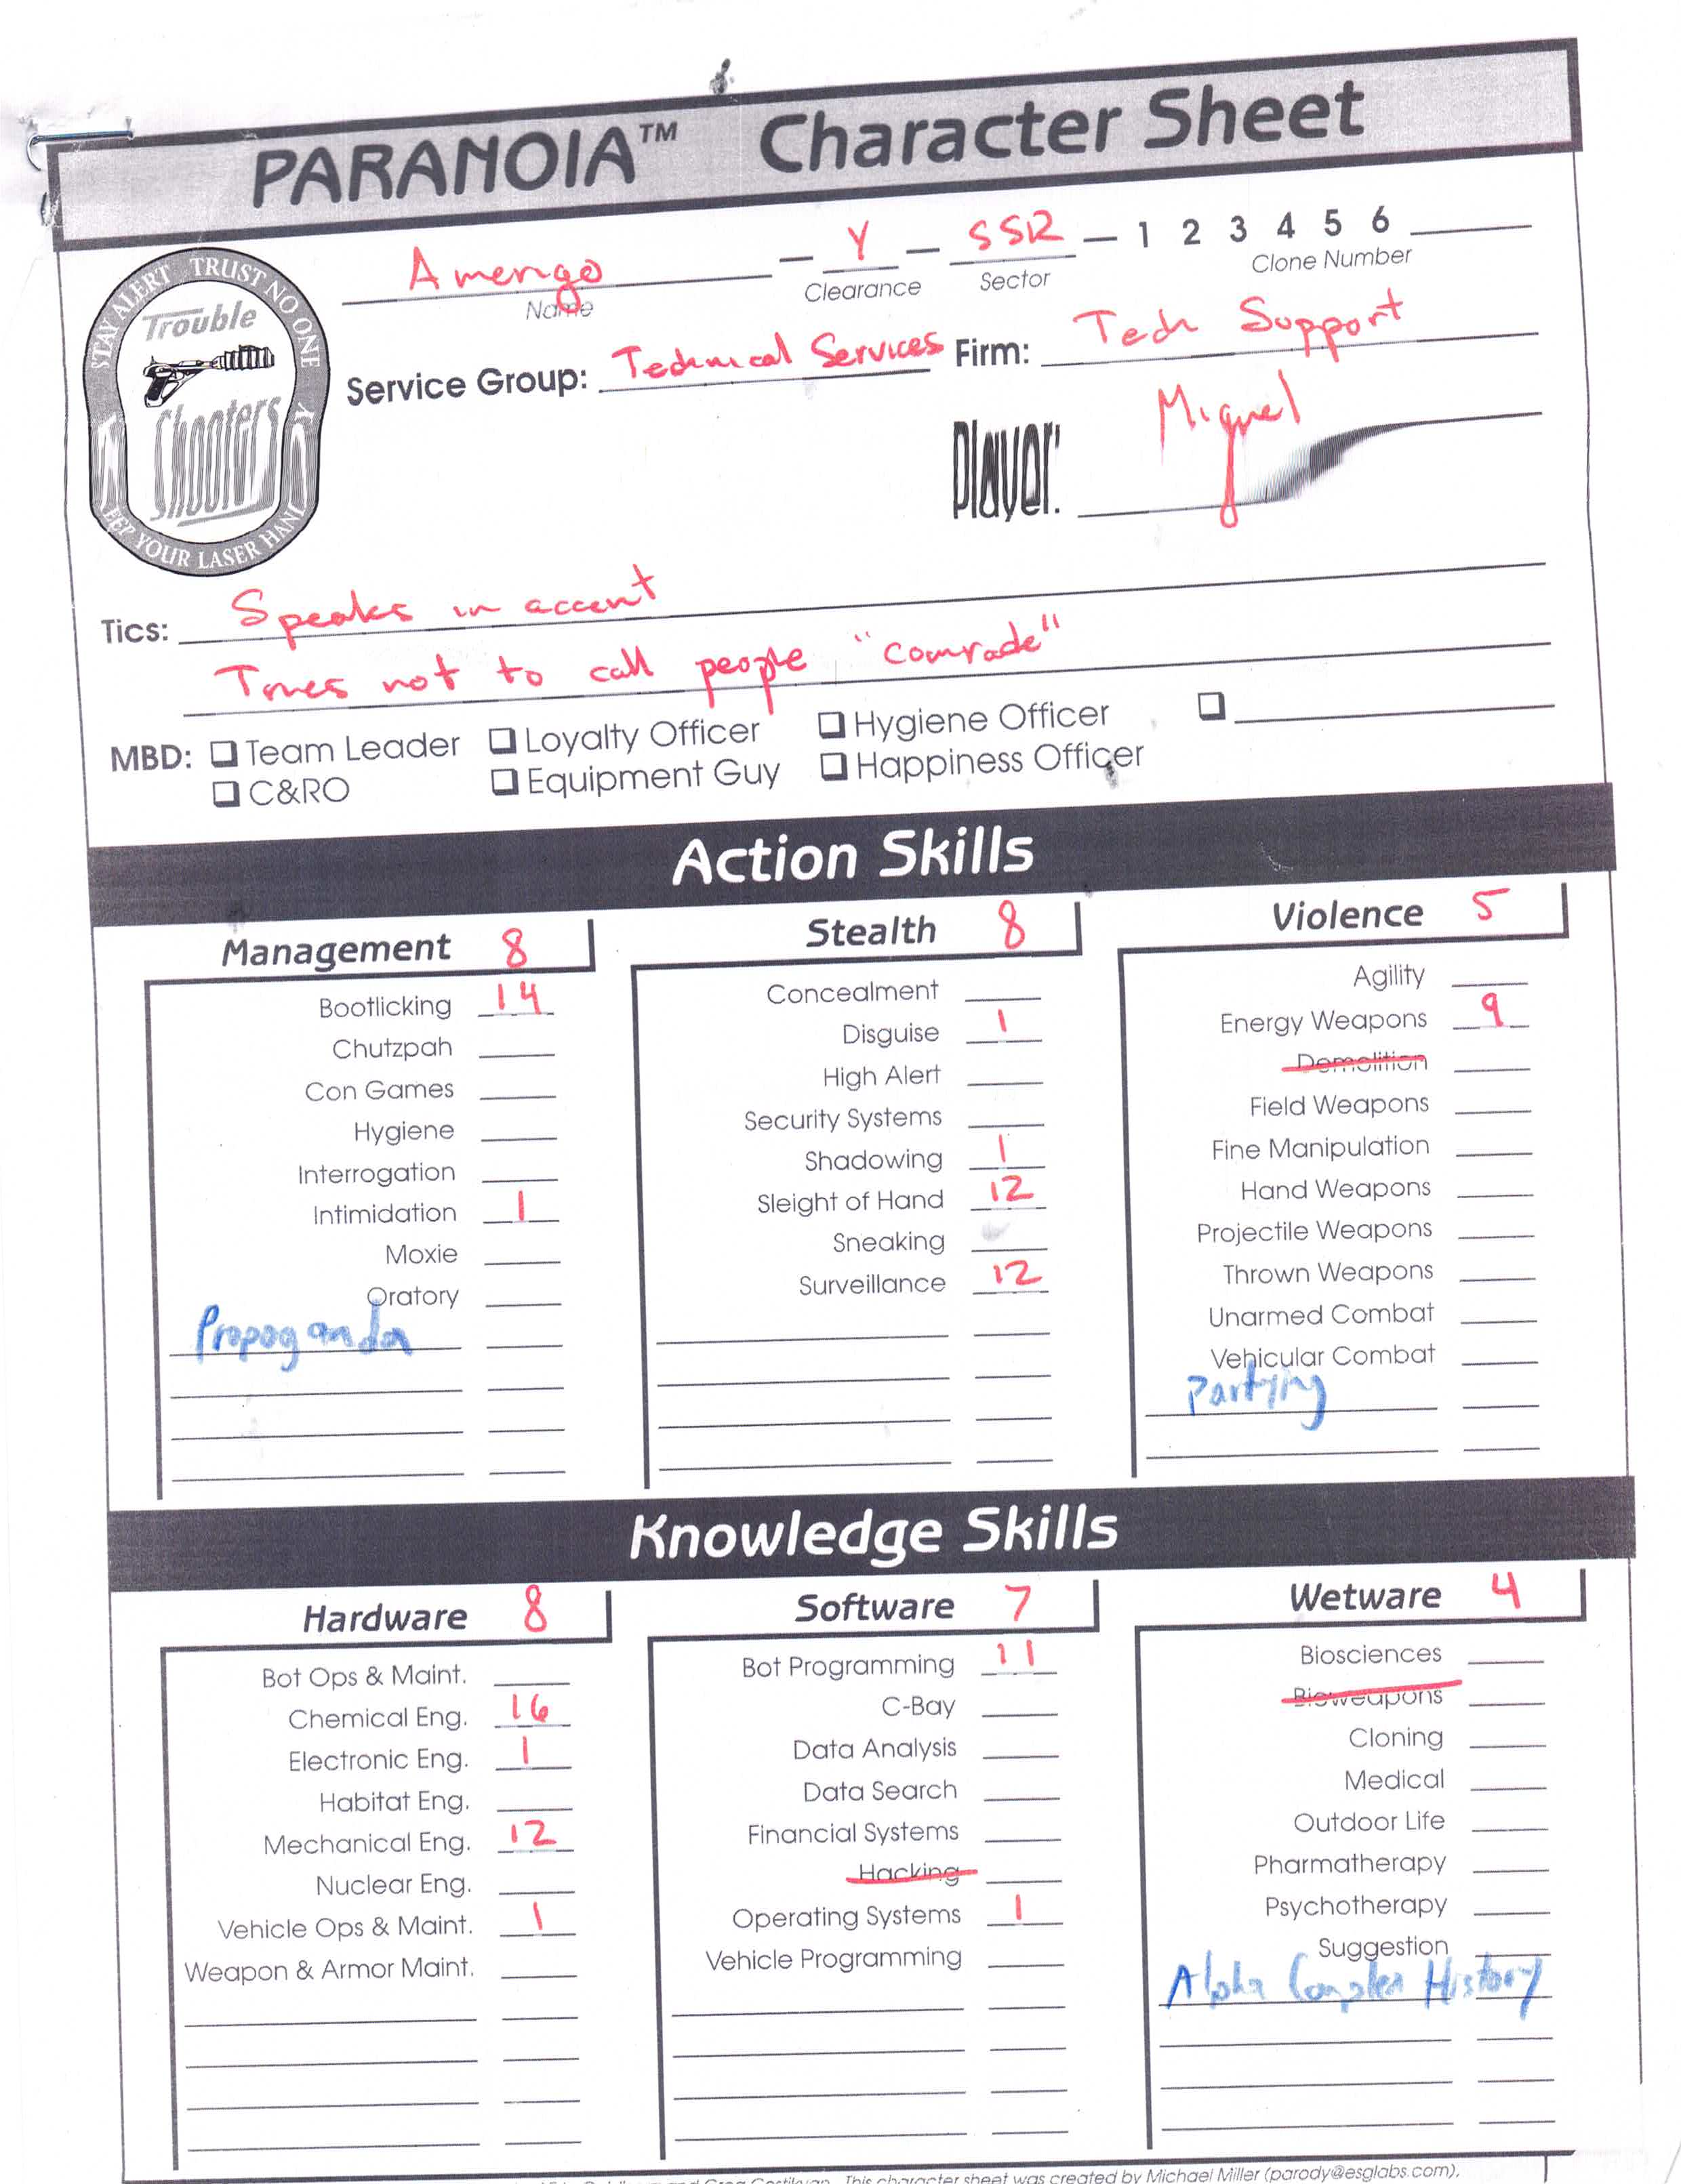 PARANOIA™ Character Sheet
STAY ALERT TRUST NO ONE KEEP YOUR LASER HANDY
Trouble
Shooters
Amerigo – Y – SSR – 1 2 3 4 5 6
Name Clearance Sector Clone Number
Service Group: Technical Services Firm: Tech Support
Player: Miguel
Tics: Speaks in accent
Tries not to call people "comrade"
MBD: Team Leader Loyalty Officer Hygiene Officer
C&RO Equipment Guy Happiness Officer
Action Skills
Management 8
Bootlicking 14
Chutzpah
Con Games
Hygiene
Interrogation
Intimidation 1
Moxie
Oratory
Propoganda
Stealth 8
Concealment
Disguise 1
High Alert
Security Systems
Shadowing 1
Sleight of Hand 12
Sneaking
Surveillance 12
Violence 5
Agility
Energy Weapons 9
Demolition
Field Weapons
Fine Manipulation
Hand Weapons
Projectile Weapons
Thrown Weapons
Unarmed Combat
Vehicular Combat
Partying
Knowledge Skills
Hardware 8
Bot Ops & Maint.
Chemical Eng. 16
Electronic Eng. 1
Habitat Eng.
Mechanical Eng. 12
Nuclear Eng.
Vehicle Ops & Maint. 1
Weapon & Armor Maint.
Software 7
Bot Programming 11
C-Bay
Data Analysis
Data Search
Financial Systems
Hacking
Operating Systems 1
Vehicle Programming
Wetware 4
Biosciences
Bioweapons
Cloning
Medical
Outdoor Life
Pharmatherapy
Psychotherapy
Suggestion
Alpha Complex History
This character sheet was created by Michael Miller (parody@esglabs.com),